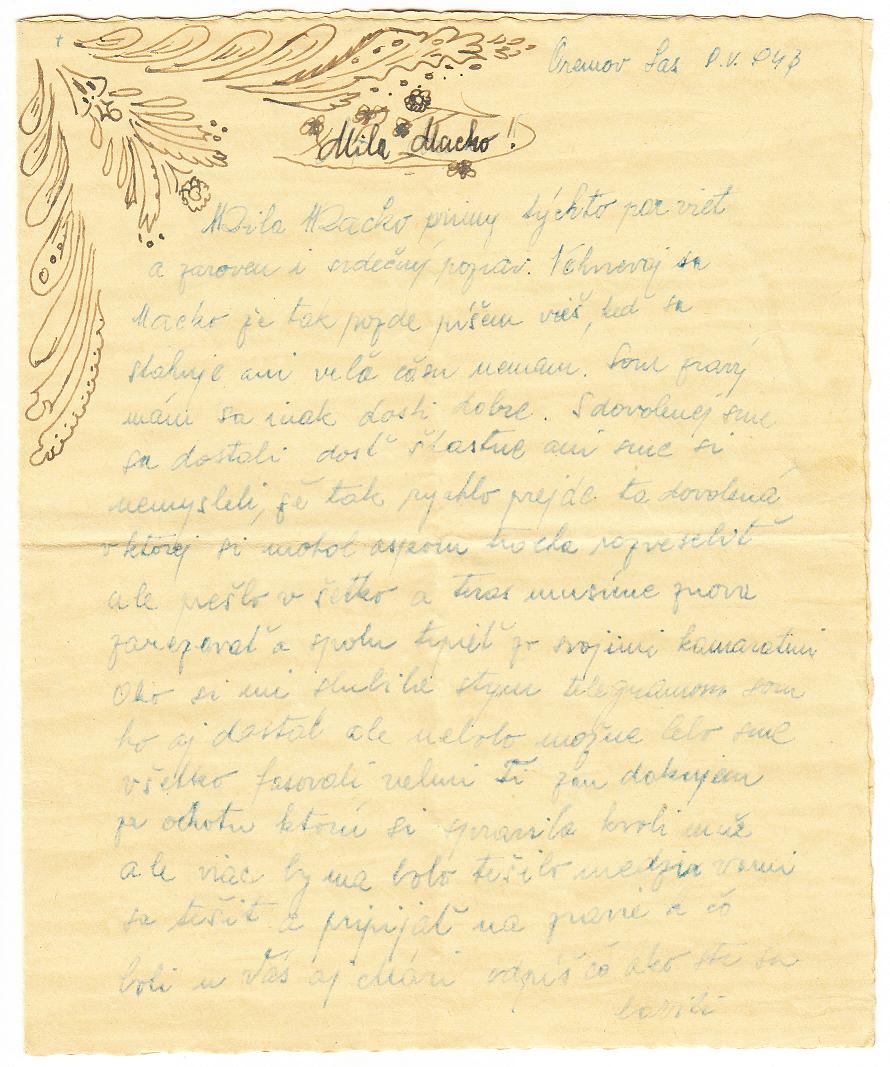 Oremov Las
Milá Macko!
Milá Macko prímy týchto par viet
a zaroven i srdečný pozrav. Nehnevaj sa
Macko že tak pozde píšem vieš, keď sa
stahuje ani veľa času nemám. Som zravý
mám sa inak dosti dobre. S dovolenej sme
sa dostali dosť šťastne ani sme si
nemysleli, že tak rychlo prejde ta dovolená
v ktorej si mohol aspom trocha rozveseliť
ale prešlo v šetko a teras musíme znova
zarezavať a spolu trpieť zo svojimi kamaratmi
Ako si mi slubila stym telegramom som
ho aj dostal ale nebolo možne lebo sme
všetko fasovali velmi Ti zan dakujem
za ochotu ktorú si spravila kvoli mňe
ale viac by ma bolo tešilo medzi vami
sa tešit a pripijať na zravie a čo
boli u Vás aj chlári odpíš čo ako ste sa
bavili